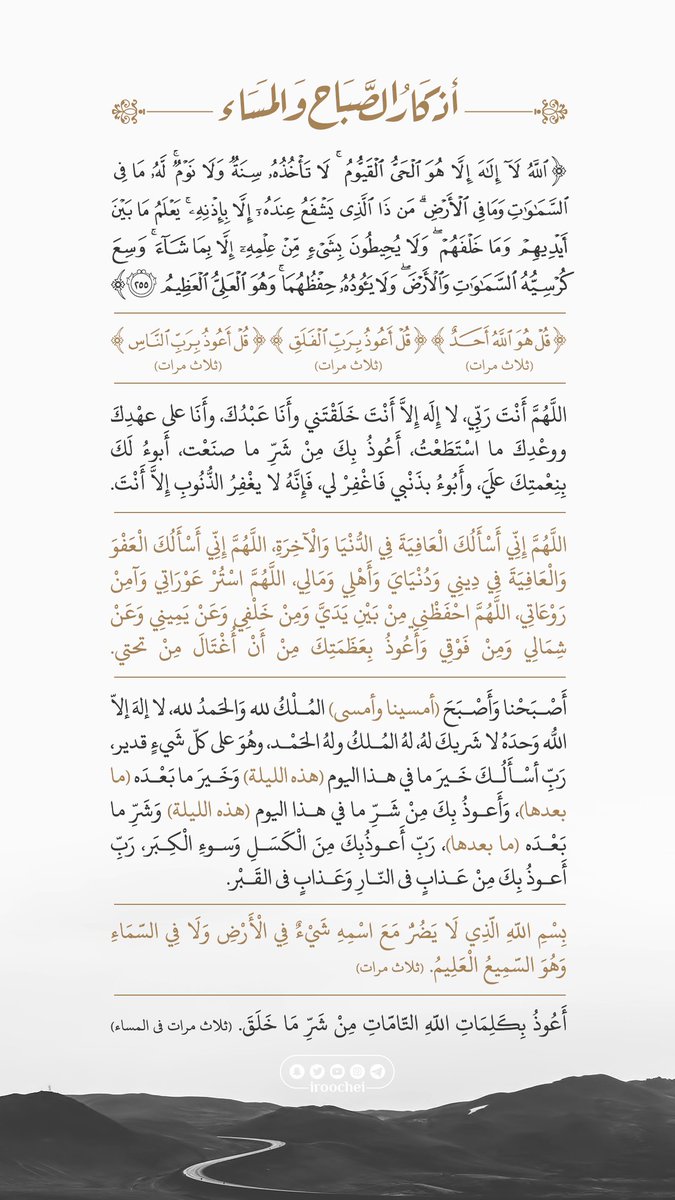 أذكار الصَّبَاح وَالمَسَاء
﴿ ٱللَّهُ لَآ إِلَٰهَ إِلَّا هُوَ ٱلۡحَيُّ ٱلۡقَيُّومُۚ لَا تَأۡخُذُهُۥ سِنَةٞ وَلَا نَوۡمٞۚ لَّهُۥ مَا فِي
ٱلسَّمَٰوَٰتِ وَمَا فِي ٱلۡأَرۡضِۗ مَن ذَا ٱلَّذِي يَشۡفَعُ عِندَهُۥٓ إِلَّا بِإِذۡنِهِۦۚ يَعۡلَمُ مَا بَيۡنَ
أَيۡدِيهِمۡ وَمَا خَلۡفَهُمۡۖ وَلَا يُحِيطُونَ بِشَيۡءٖ مِّنۡ عِلۡمِهِۦٓ إِلَّا بِمَا شَآءَۚ وَسِعَ
كُرۡسِيُّهُ ٱلسَّمَٰوَٰتِ وَٱلۡأَرۡضَۖ وَلَا يَـُٔودُهُۥ حِفۡظُهُمَاۚ وَهُوَ ٱلۡعَلِيُّ ٱلۡعَظِيمُ ٢٥٥ ﴾
﴿ قُلۡ هُوَ ٱللَّهُ أَحَدٌ ﴾ ﴿ قُلۡ أَعُوذُ بِرَبِّ ٱلۡفَلَقِ ﴾ ﴿ قُلۡ أَعُوذُ بِرَبِّ ٱلنَّاسِ ﴾
(ثلاث مرات) (ثلاث مرات) (ثلاث مرات)
اللَّهُمَّ أَنْتَ رَبِّي، لا إِلَه إِلاَّ أَنْتَ خَلَقْتَني وأَنَا عَبْدُكَ، وأَنَا على عهْدِكَ
ووعْدِكَ ما اسْتَطَعْتُ، أَعُوذُ بِكَ مِنْ شَرِّ ما صنَعْت، أَبوءُ لَكَ
بِنِعْمتِكَ علَيَ، وأَبُوءُ بذَنْبي فَاغْفِرْ لي، فَإِنَّهُ لا يغْفِرُ الذُّنُوبِ إِلاَّ أَنْتَ.
اللَّهُمَّ إِنِّي أَسْأَلُكَ الْعَافِيَةَ فِي الدُّنْيَا وَالْآخِرَةِ، اللَّهُمَّ إِنِّي أَسْأَلُكَ الْعَفْوَ
وَالْعَافِيَةَ فِي دِينِي وَدُنْيَايَ وَأَهْلِي وَمَالِي، اللَّهُمَّ اسْتُرْ عَوْرَاتِي وَآمِنْ
رَوْعَاتِي، اللَّهُمَّ احْفَظْنِي مِنْ بَيْنِ يَدَيَّ وَمِنْ خَلْفِي وَعَنْ يَمِينِي وَعَنْ
شِمَالِي وَمِنْ فَوْقِي وَأَعُوذُ بِعَظَمَتِكَ مِنْ أَنْ أُغْتَالَ مِنْ تحتي.
أَصْبَحْنا وَأَصْبَحَ (أمسينا وأمسى) المُلْكُ لله وَالحَمدُ لله، لا إلهَ إلاّ
اللّه وَحدَهُ لا شريكَ لهُ، لهُ المُلكُ ولهُ الحَمْد، وهُوَ على كلّ شَيءٍ قدير،
رَبِّ أسْأَلُكَ خَيرَ ما في هذا اليوم (هذه الليلة) وَخَيرَ ما بَعْدَه (ما
بعدها)، وَأَعوذُ بِكَ مِنْ شَرِّ ما في هذا اليوم (هذه الليلة) وَشَرِّ ما
بَعْدَه (ما بعدها)، رَبِّ أَعوذُبِكَ مِنَ الْكَسَلِ وَسوءِ الْكِبَر، رَبِّ
أَعوذُ بِكَ مِنْ عَذابٍ في النّارِ وَعَذابٍ في القَبْر.
بِسْمِ اللهِ الّذِي لَا يَضُرُّ مَعَ اسْمِهِ شَيْءٌ فِي الْأَرْضِ وَلَا فِي السّمَاءِ
وَهُوَ السّمِيعُ الْعَلِيمُ. (ثلاث مرات)
أَعُوذُ بِكَلِمَاتِ اللهِ التّامّاتِ مِنْ شَرِّ مَا خَلَقَ. (ثلاث مرات في المساء)
iroochei